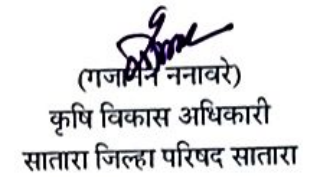 (गजानन ननावरे)
कृषि विकास अधिकारी
सातारा जिल्हा परिषद सातारा